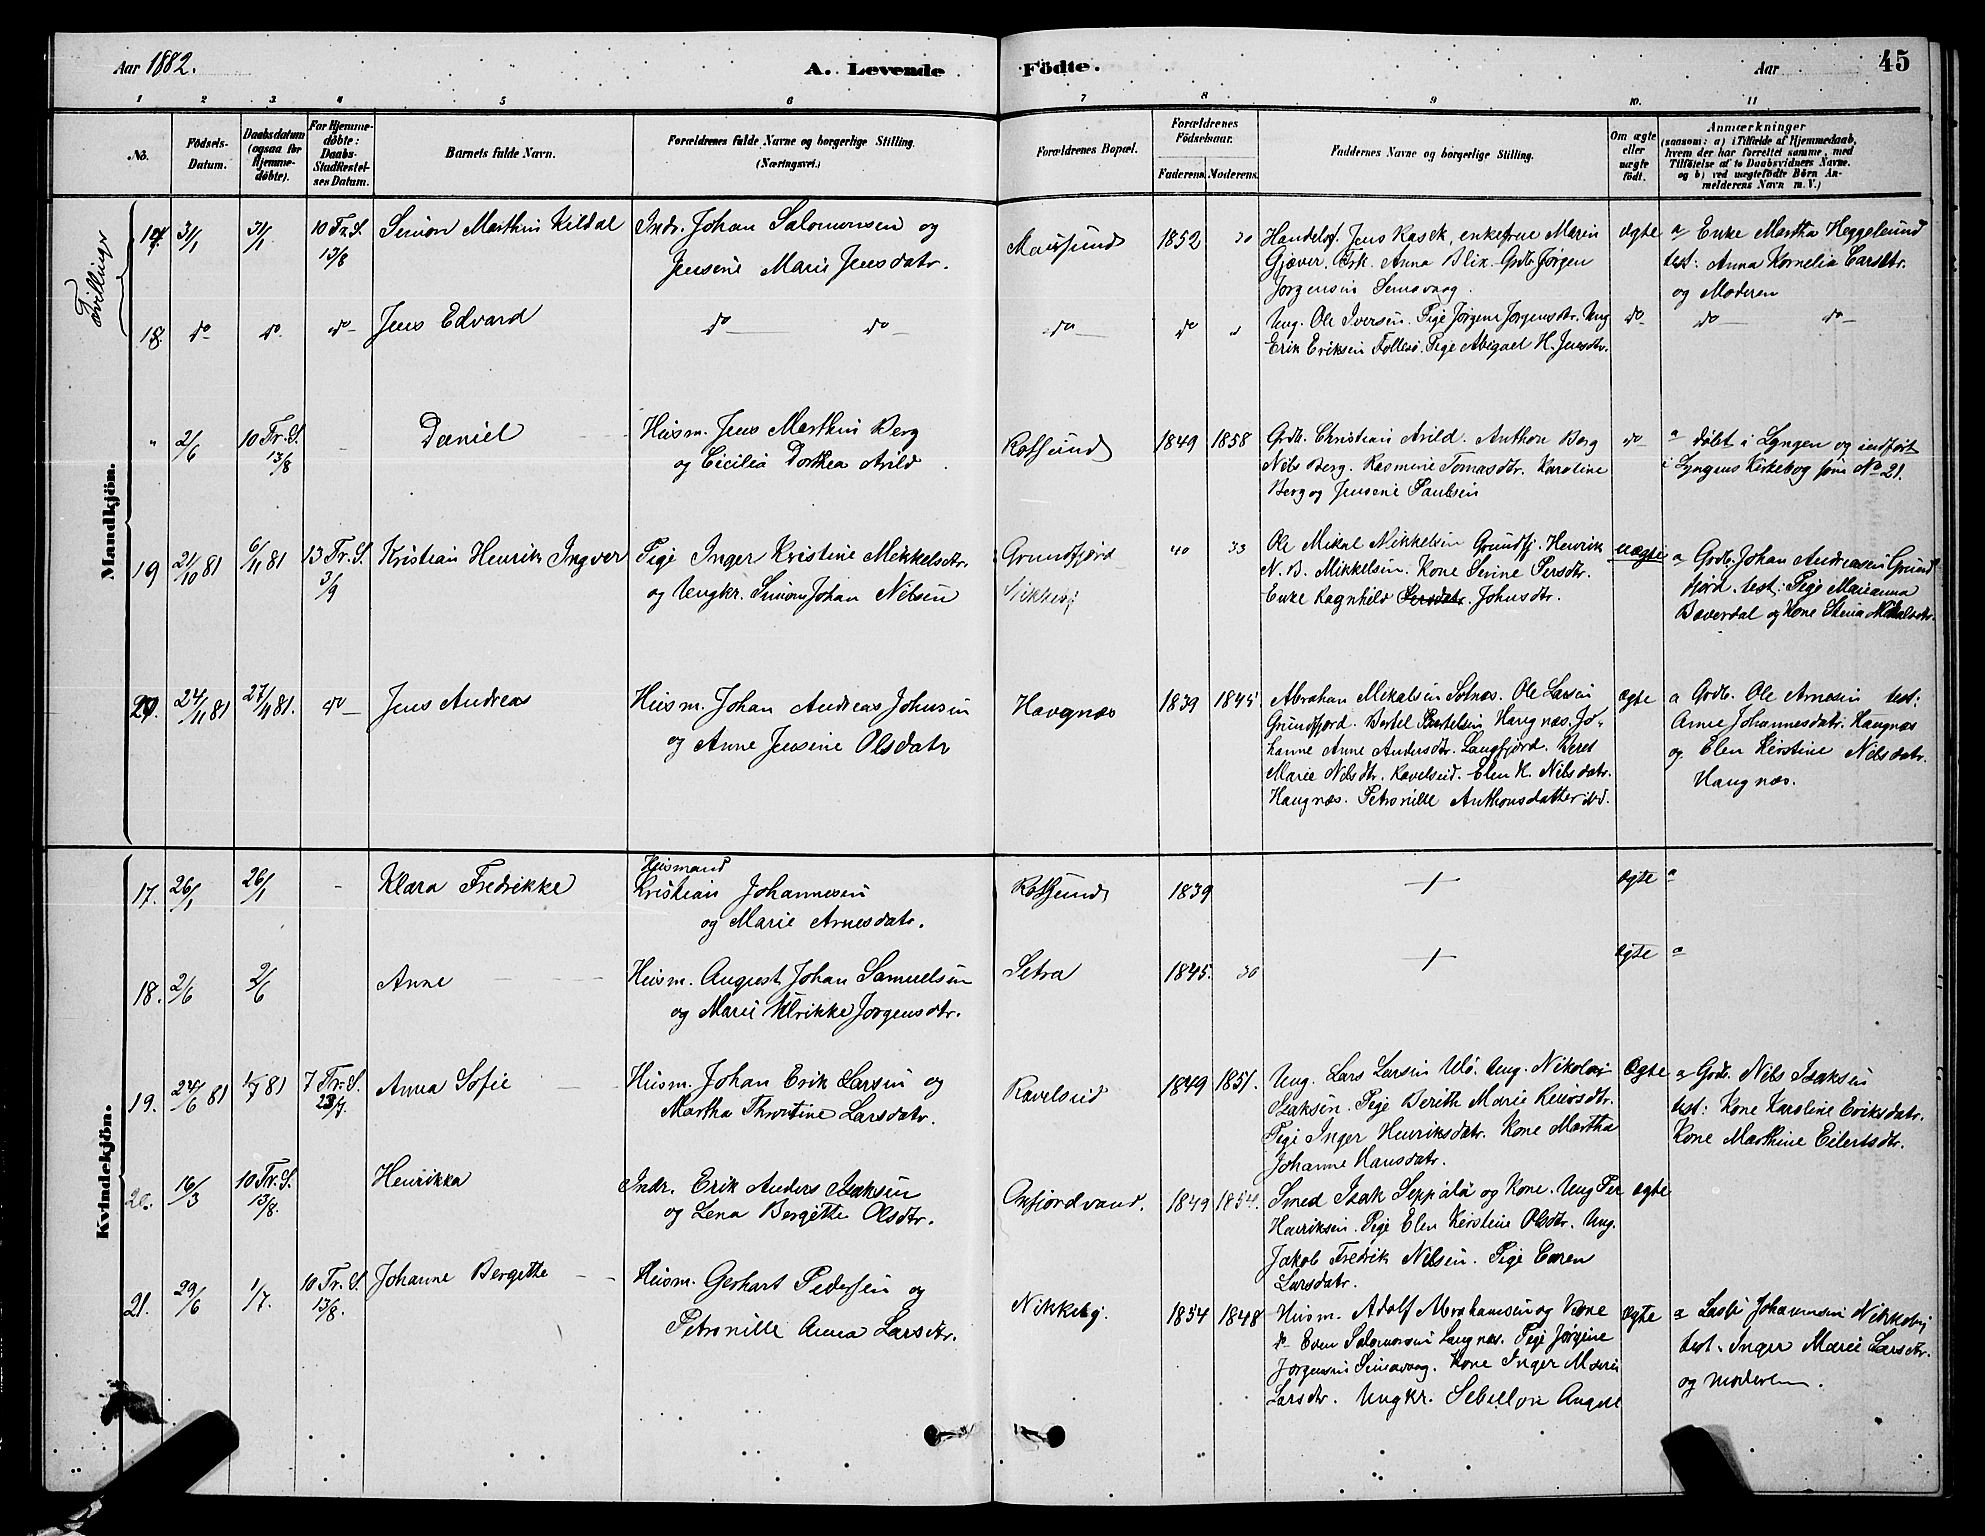 Aar 1882.
A. Levende Födte.
Aar
45
1 2 3. 4 5 6 7 8 9 10. 11
No.
Födsels-Datum.
Daabsdatum (ogsaa for Hjemmedöbte).
For Hjemmedöbte: Daabs-Stadfæstelses Datum.
Barnets fulde Navn.
Forældrenes fulde Navne og borgerlige Stilling. (Næringsvei.)
Forældrenes Bopæl.
Forældrenes Födselsaar.
Faderens. Moderens.
Faddernes Navne og borgerlige Stilling.
Om ægte eller uægte födt.
Anmærkninger (saasom: a) i Tilfælde af Hjemmedaab, hvem der har forrettet samme, med Tilföielse af to Daabsvidners Navne. og b) ved uægtefödte Börn Anmelderens Navn m. V.)
Tvillinger
Mandkjön.
17. 31/1 31/1. 10 Tr. S. 13/8 Simon Marthin Kildal
Indr. Johan Salomonsen og
Jensine Marie Jensdatr.
Maursund 1852 30
Handelsf. Jens Rasck, enkefrue Maren
Gjæver. Frk. Anna Blix. Grdb. Jörgen
Jörgensen Simavaag.
ægte
a Enke Martha Heggelund
test: Anna Kornelia Carsdtr.
og Moderen
18. do do. do Jens Edvard do do do do
Ung. Ole Iversen. Pige Jörgine Jörgensdtr. Ung
Erik Eriksen Follesö. Pige Abigael H. Jensdtr.
do do do
" 2/6 10 Tr. S. 13/8 Daniel
Husm. Jens Marthin Berg
og Cecilia Dorthea Arild
Rotsund 1849 1858
Grdb. Christian Arild. Anthon Berg
Nils Berg. Rasmine Tomasdtr. Karoline
Berg og Jensine Paulsen
do
a döbt i Lyngen og indfört
i Lyngens Kirkebog som No 21.
19 21/10 81 6/11 81 13 Tr. S. 3/9 Kristian Henrik Ingver
Pige Inger Kristine Mikkelsdtr.
og Ungkr. Simon Johan Nilsen
Grundfjord
Nikkeby
40 33
Ole Mikal Mikkelsen Grundfj. Henrik
N. B. Mikkelsen. Kone Serine Persdtr.
Enke Ragnhild Persdatr. Johnsdtr.
uægte
a Grdb. Johan Andreasen Grund
fjord. test: Pige Marianna
Bæverdal og Kone Stina Mikalsdtr.
20. 24/11 81 27/11 81. do Jens Andreas
Husm. Johan Andreas Johnsen
og Anne Jensine Olsdatr
Havgnæs 1839 1845.
Abrahan Mikalsen Sotnæs. Ole Larsen
Grundfjord. Bertel Bertelsen Haugnæs. Jo-
hanne Anne Andersdtr. Langfjord. Beret
Marie Nilsdtr. Ravelseid. Elen K. Nilsdatr.
Haugnæs. Petronille Anthonsdatter ibd.
ægte
a Grdb. Ole Arnesen test:
Anne Johannesdatr. Haugnæs
og Elen Kirstine Nilsdatr.
Haugnæs.
Kvindekjön.
17. 26/1 26/1 - Klara Fredrikke
Husmand
Kristian Johannesen
og Marie Arnesdatr.
Rotsund 1839
ægte a
18. 2/6 2/6 Anne
Husm. August Johan Samuelsen
og Marie Ulrikke Jörgensdtr.
Setra 1845. 36
ægte a
19. 24/6 81 1/7 81 7 Tr. S. 23/7. Anna Sofie
Husm. Johan Erik Larsen og
Martha Thrutine Larsdatr.
Ravelseid 1849 1851.
Ung. Lars Larsen Ulö. Ung. Nikolai
Isaksen. Pige Berith Marie Reiersdtr.
Pige Inger Henriksdatr. Kone Martha
Johanne Hansdatr.
Ægte
a Grdb. Nils Isaksen
test: Kone Karoline Eriksdatr.
Kone Marthine Eilertsdtr.
20. 16/3 10 Tr. S. 13/8. Henrikka
Indr. Erik Anders Isaksen
og Lena Bergitte Olsdtr.
Oxfjordvand. 1849 1854.
Smed Isak Seppälä og Kone. Ung Per
Henriksen. Pige Elen Kirstine Olsdtr. Ung.
Jakob Fredrik Nilsen. Pige Caren
Larsdatr.
ægte
21. 29/6 1/7. 10 Tr. S. 13/8. Johanne Bergitte
Husm. Gerhart Pedersen og
Petronille Anna Larsdtr.
Nikkeby. 1854 1848
Husm. Adolf Abrahamsen og Kone
do Even Salomonsen Laugnæs. Pige Jörgine
Jörgensen Simavaag. Kone Inger Marie
Larsdtr. Ungkr. Sebulon Angell
Ægte
a Johannesen Nikkeby
test. Inger Marie Larsdtr.
og moderen.